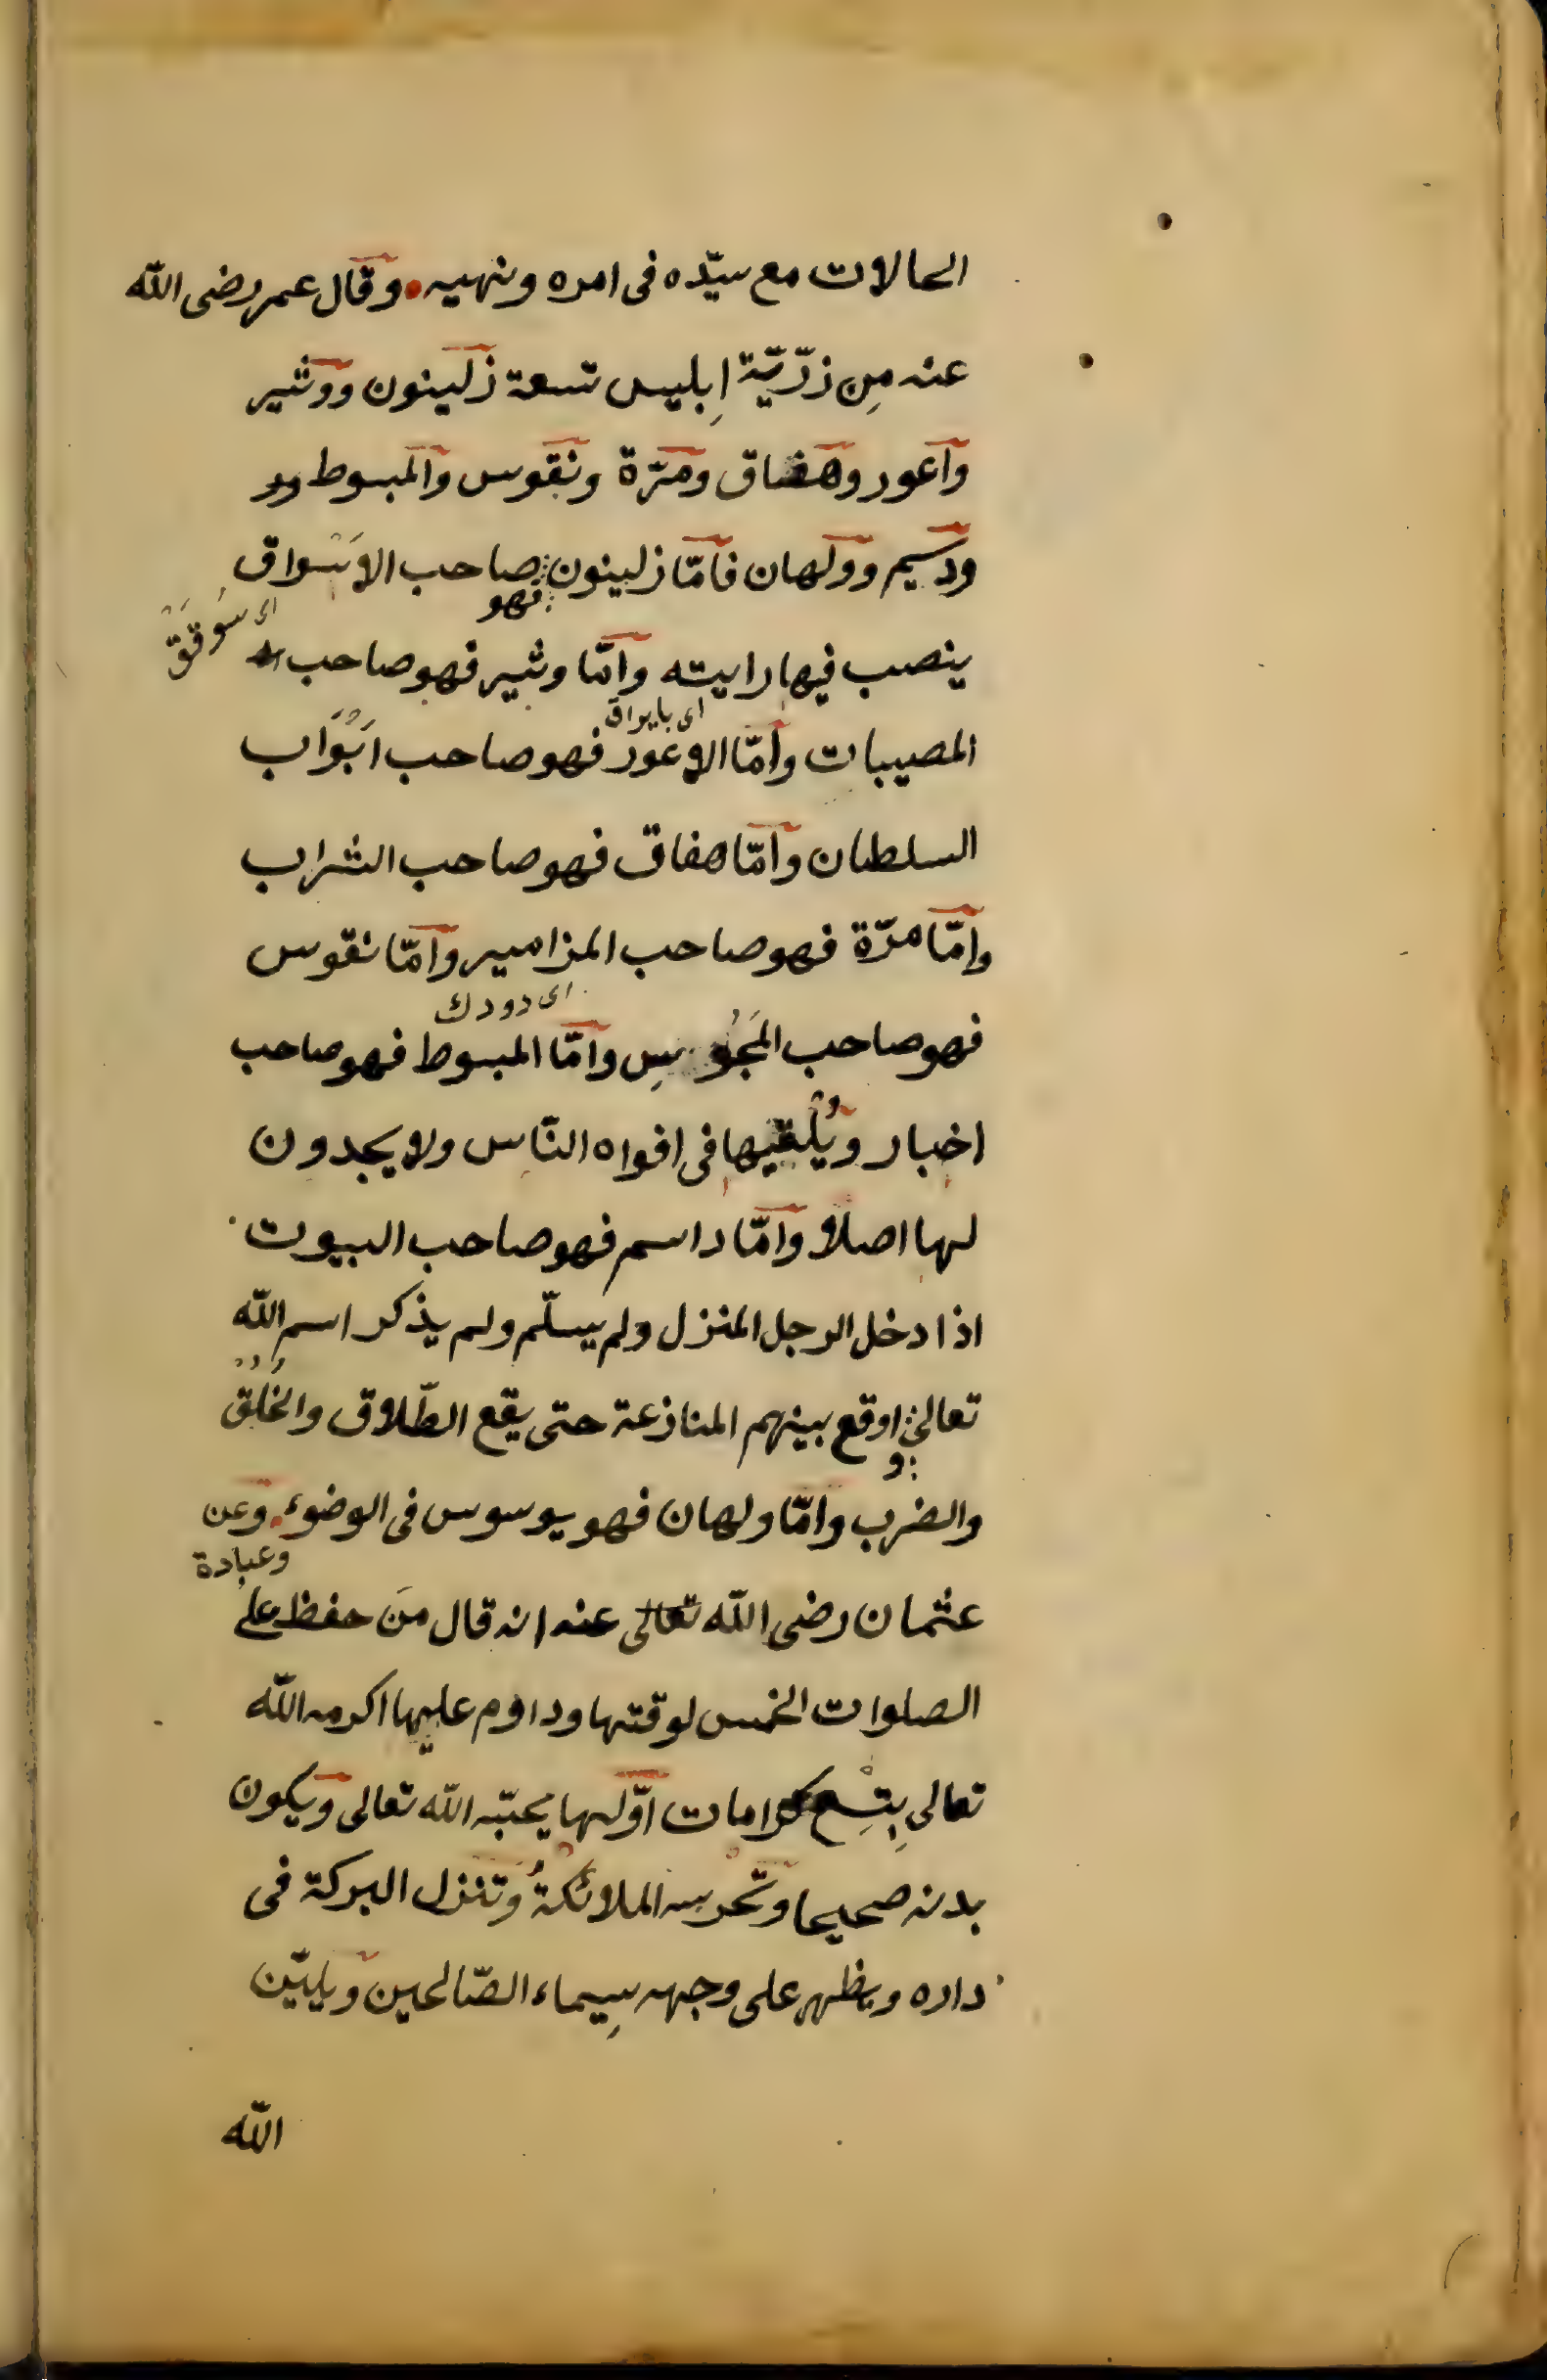 الحالات مع سيّده فى امره ونهيه وقال عمر رضى الله
عنه مِن ذرّيّة اِبليس تسعة زلينون ووثير
واعور وهفاق ومرّة ونقوس والمبسوط
ودسيم وولهان فامّا زلينون صاحب الاسْواق
فهو
اى سوقق
ينصب فيها رايته وامّا وثير فهو صاحب
اى بايراق
المصيبات وامّا الاعور فهو صاحب ابْوَاب
السلطان وامّا هفاق فهو صاحب الشراب
وامّا مرّة فهو صاحب المزامير وامّا نقوس
اى دودك
فهو صاحب المَجُوسِ وامّا المبسوط فهو صاحب
اخبار ويُلقيها فى افواه النّاس ولا يجدون
لها اصلا وامّا داسم فهو صاحب البيوت
اذا دخل الرجل المنزل ولم يسلّم ولم يذكر اسم الله
تعالى اوقع بينهم المنازعة حتى يقع الطّلاق والخُلْق
و
والضرب وامّا ولهان فهو يوسوس فى الوضوء وعن
وعبادة
عثمان رضى الله تعالى عنه انه قال مَن حفظ على
الصلوات الخمس لوقتها وداوم عليها اكرمه الله
تعالى بِتِسْع كرامات اوّلها يحبّه الله تعالى ويكون
بدنه صحيحا وتحرسه الملائكةُ وتنزل البركة فى
داره ويظهر على وجهه سِيماء الصّالحين ويليّن
الله